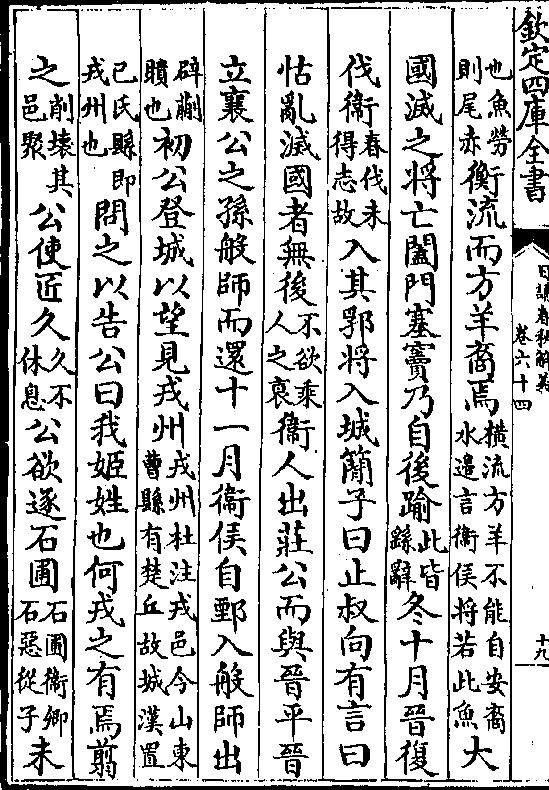 欽定四庫全書
日講春秋解義
卷六十四
十九
也魚勞則尾赤衡流而方羊裔焉橫流方羊不能自安裔水邊言衞侯將若此魚大
國滅之將亡闔門塞竇乃自後踰此皆繇辭冬十月晉復
伐衞春伐未得志故入其郛將入城簡子曰止叔向有言曰
怙亂滅國者無後不欲乘人之衰衞人出莊公而與晉平晉
立襄公之孫般師而還十一月衞侯自鄄入般師出
辟蒯聵也初公登城以望見戎州戎州杜注戎邑今山東曹縣有楚丘故城漢置
已氏縣即戎州也問之以告公曰我姬姓也何戎之有焉翦
之削壞其邑聚公使匠久久不休息公欲逐石圃石圃衞卿石惡從子未